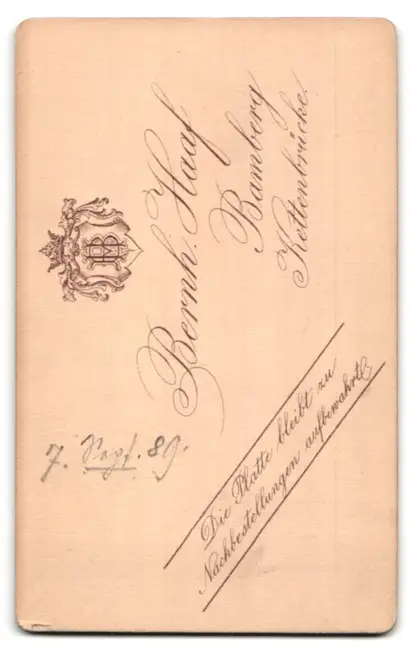 BH
Bernh. Haaf
Bamberg
Kettenbrücke.
Die Platte bleibt zu
Nachbestellungen aufbewahrt.
7. Sept. 89.